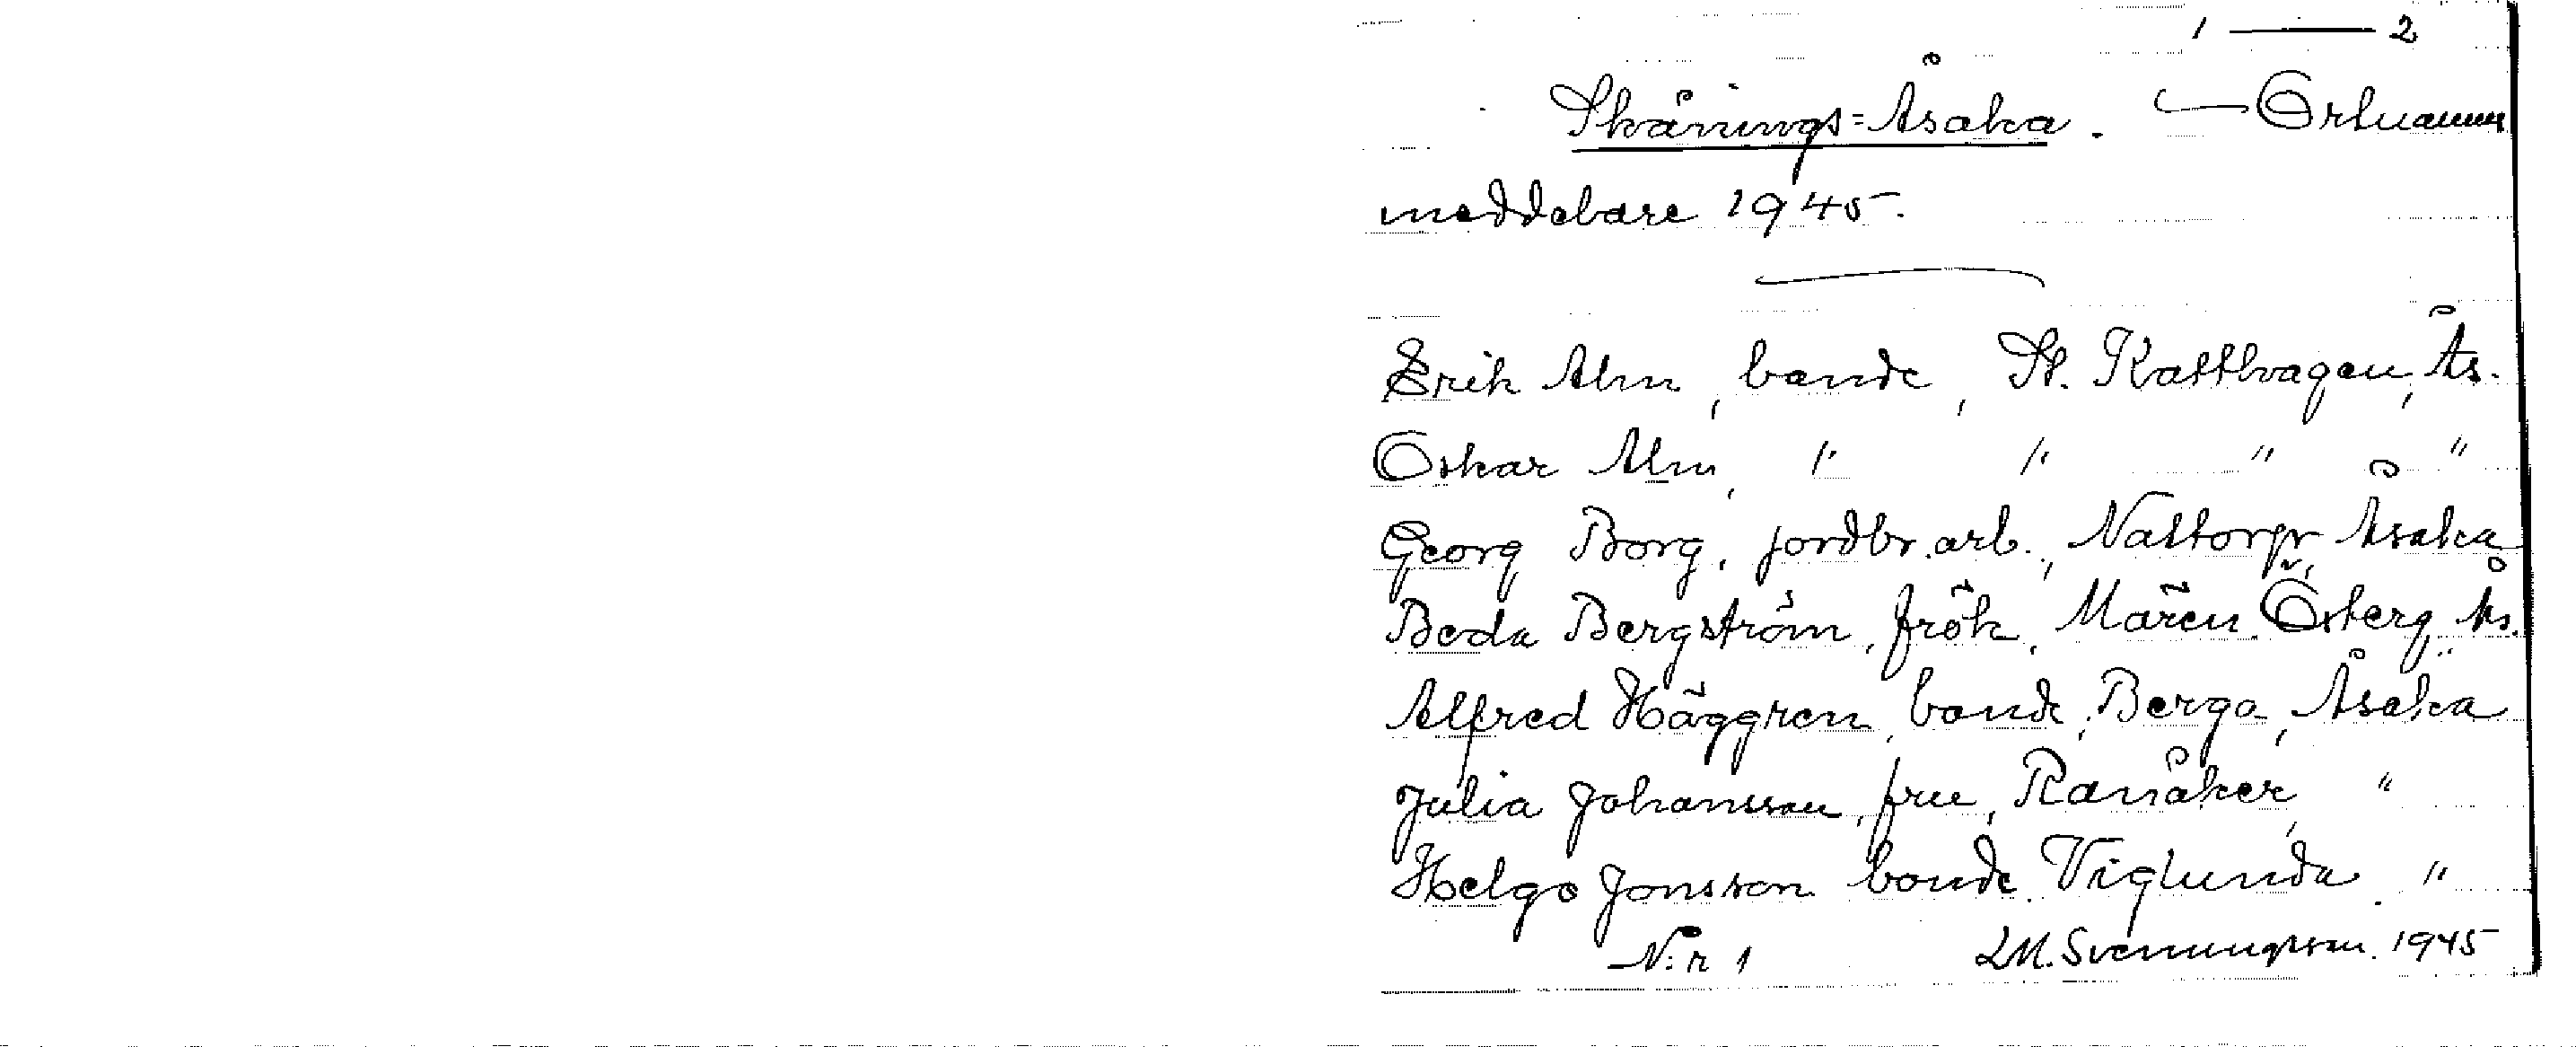 1 — 2
Skånings=Åsaka. — Ortnamns
meddelare 1945.
Erik Alm, bonde, St. Katthagen, Ås.
Oskar Alm, " " " "
Georg Borg, jordbr.arb., Nattorp, Åsaka
Beda Bergström, frök, Mären Österg. Ås.
Alfred Häggren, bonde, Berga, Åsaka
Julia Johansson, fru, Ranåker, "
Helge Jonsson bonde Viglunda. "
N:r 1 LM. Svenungsson. 1945